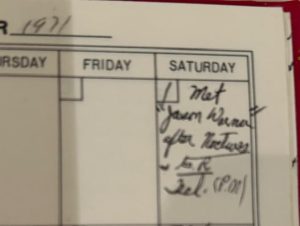 R 1971
RSDAY FRIDAY SATURDAY
1 Met
"Jason Warner"
after
to R
Tel. (P.M)